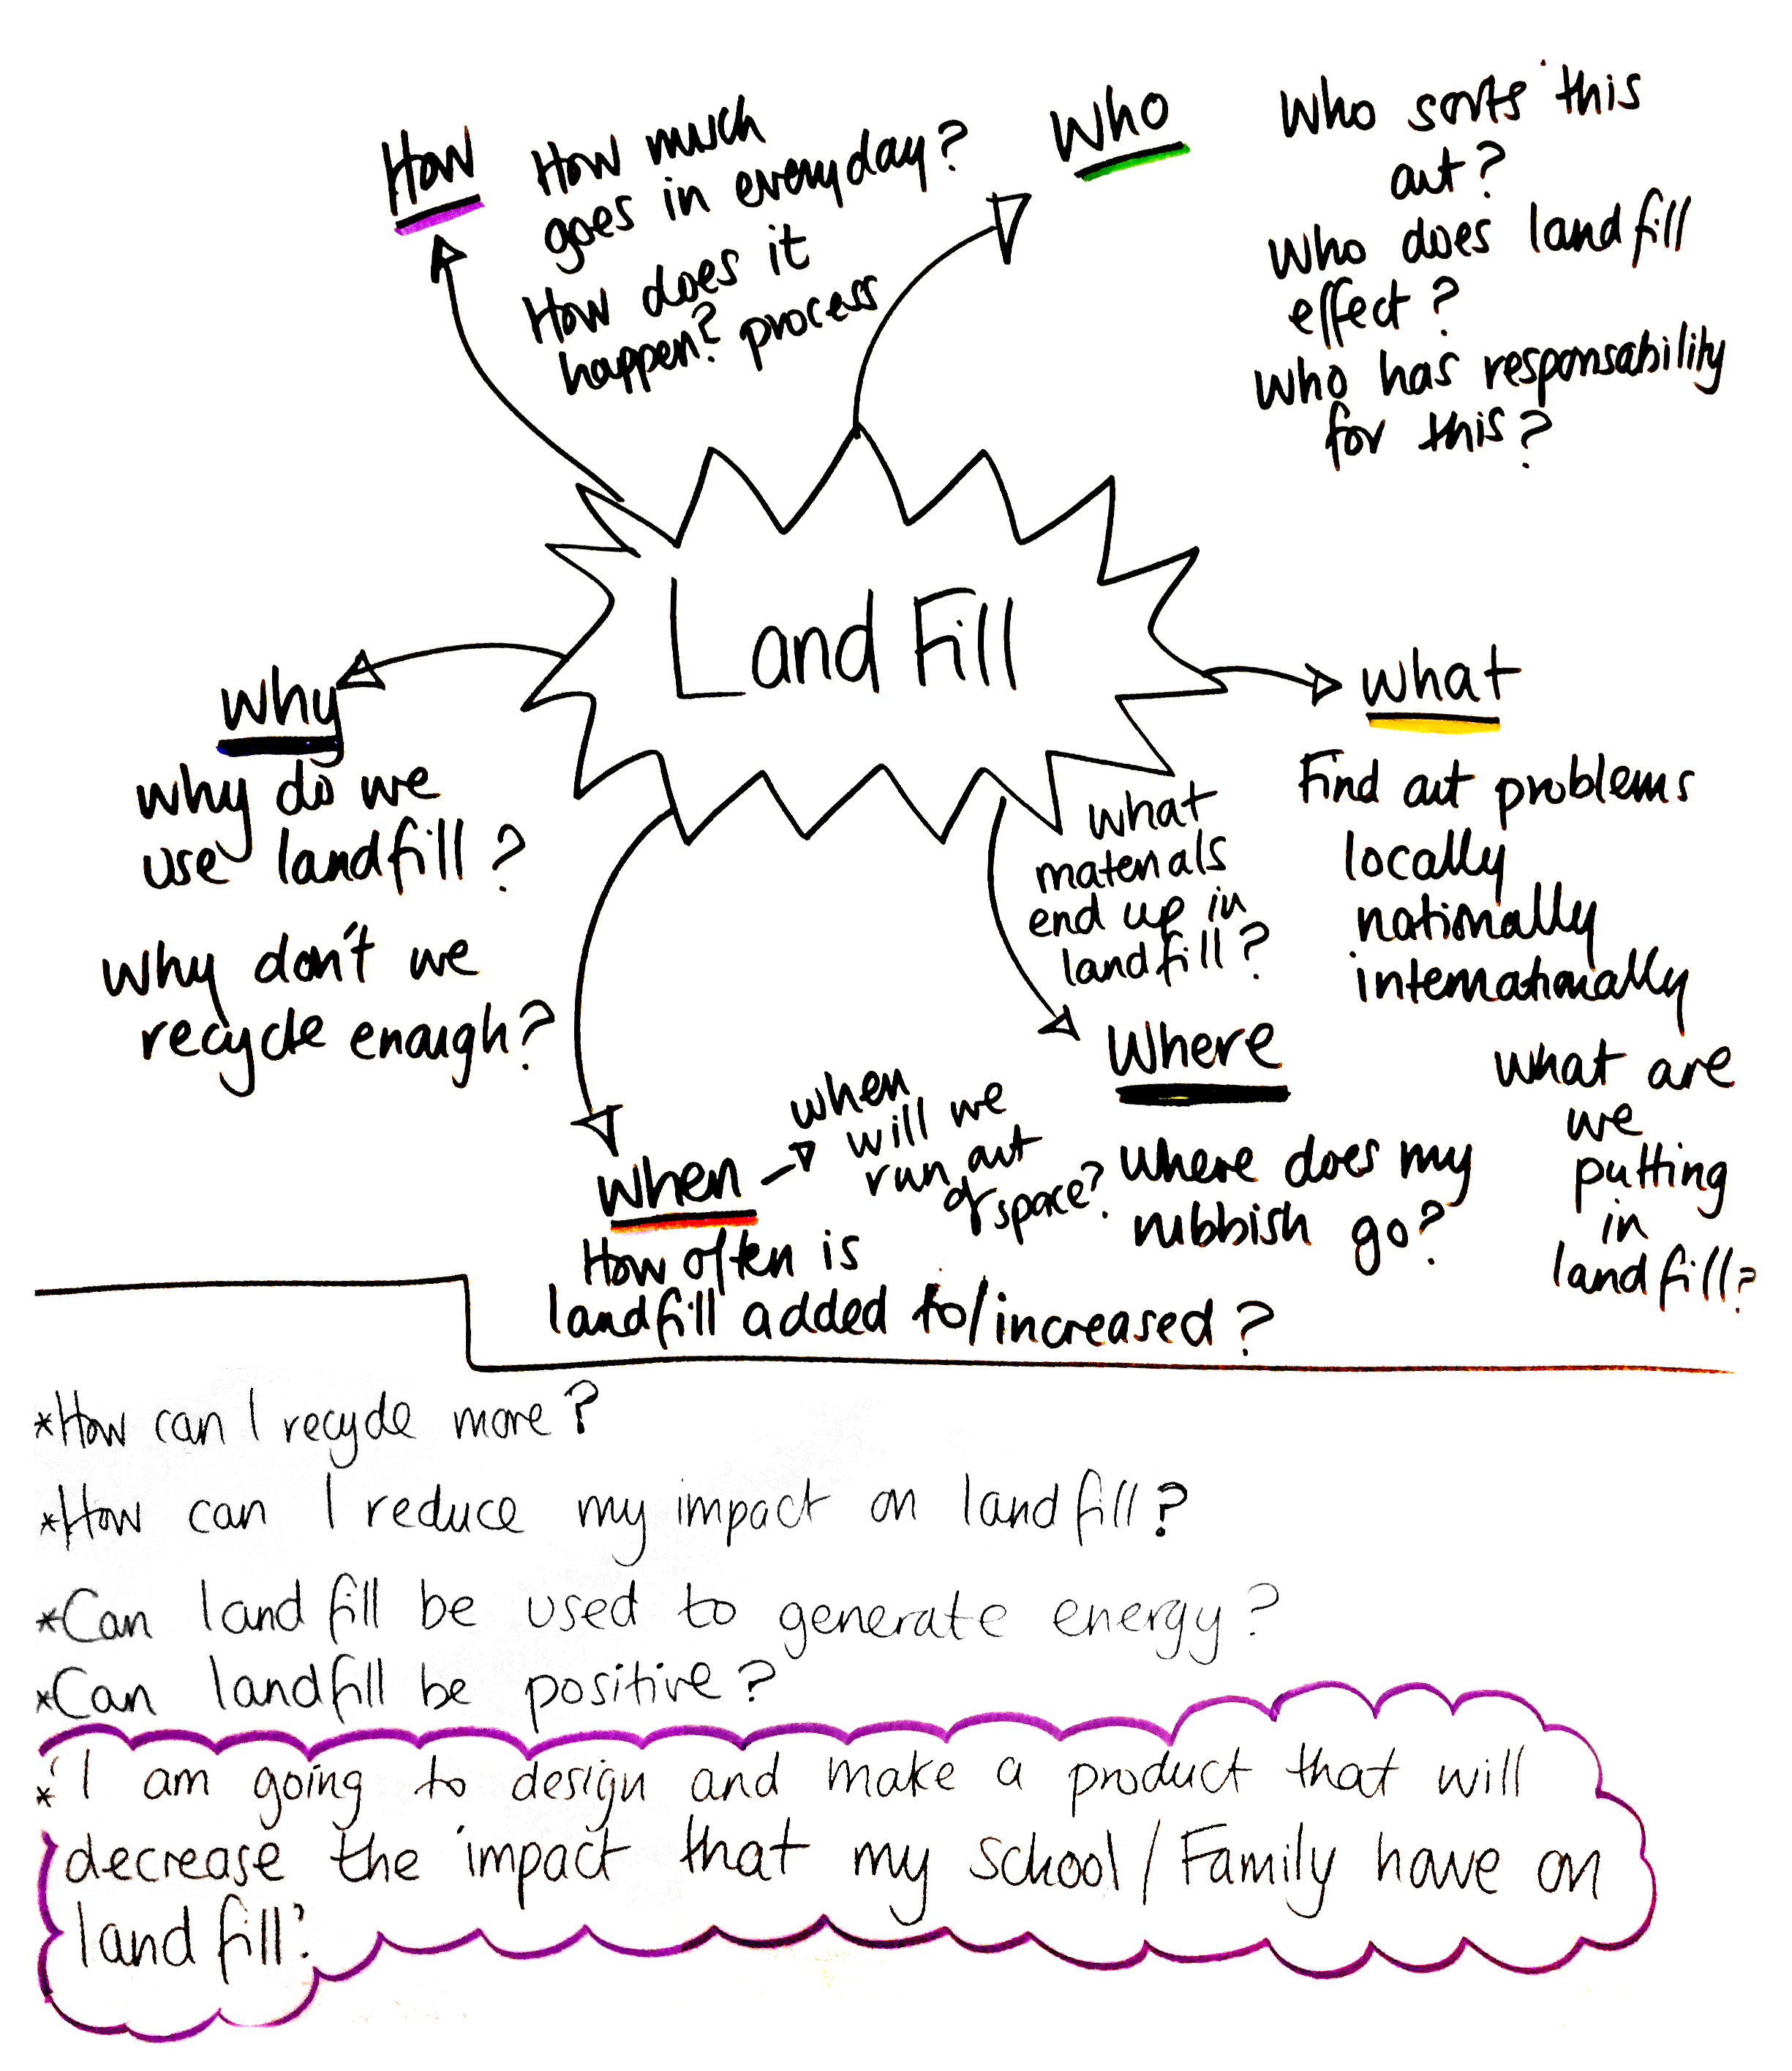 How
How much
goes in everyday?
How does it
happen? process
Who
Who sorts this
out?
Who does landfill
effect?
Who has responsability
for this?
Land Fill
Why
Why do we
use landfill?
Why don't we
recycle enough?
What
Find out problems
locally
nationally
internationally
What are
we
putting
in
landfill?
What
materials
end up in
landfill?
Where
Where does my
rubbish go?
When
when
will we
run out
of space?
How often is
landfill added to/increased?
*How can I recycle more?
*How can I reduce my impact on landfill?
*Can landfill be used to generate energy?
*Can landfill be positive?
*'I am going to design and make a product that will
decrease the impact that my school/Family have on
landfill'.